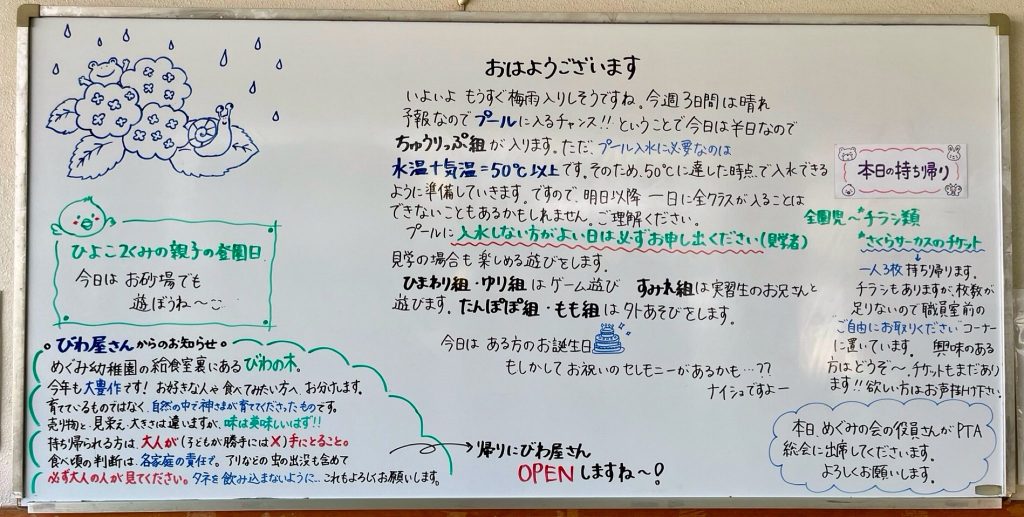 おはようございます
いよいよ もうすぐ梅雨入りしそうですね。今週3日間は晴れ
予報なのでプールに入るチャンス!! ということで今日は半日なので
ちゅうりっぷ組が入ります。ただ、プール入水に必要なのは
水温+気温=50℃以上です。そのため、50℃に達した時点で入水できる
ように準備していきます。ですので、明日以降 一日に全クラスが入ることは
できないこともあるかもしれません。ご理解ください。
プールに入水しない方がよい日は必ずお申し出ください(見学者)
見学の場合も楽しめる遊びをします。
ひまわり組・ゆり組はゲーム遊び すみれ組は実習生のお兄さんと
遊びます。たんぽぽ組・もも組は外あそびをします。
今日は ある方のお誕生日
もしかしてお祝いのセレモニーがあるかも…??
ナイショですよー
ひよこ2くみの親子の登園日
今日は お砂場でも
遊ぼうね〜
びわ屋さんからのお知らせ
めぐみ幼稚園の給食室裏にあるびわの木。
今年も大豊作です! お好きな人や食べてみたい方へ、お分けします。
育てているものではなく、自然の中で神さまが育ててくださったものです。
売り物と、見栄え、大きさは違いますが、味は美味しいはず!!
持ち帰られる方は、大人が(子どもが勝手には×)手にとること。
食べ頃の判断は、各家庭の責任で。アリなどの虫の出没も含めて
必ず大人の人が見てください。タネを飲み込まないように…これもよろしくお願いします。
帰りにびわ屋さん
OPENしますね〜!
本日の持ち帰り
全園児〜*チラシ類
*さくらサーカスのチケット
↓
一人3枚持ち帰ります。
チラシもありますが、枚数が
足りないので職員室前の
"ご自由にお取りください"コーナー
に置いています。 興味のある
方はどうぞ〜。チケットもまだあり
ます!! 欲しい方はお声掛け下さい
本日、めぐみの会の役員さんがPTA
総会に出席してくださいます。
よろしくお願いします。